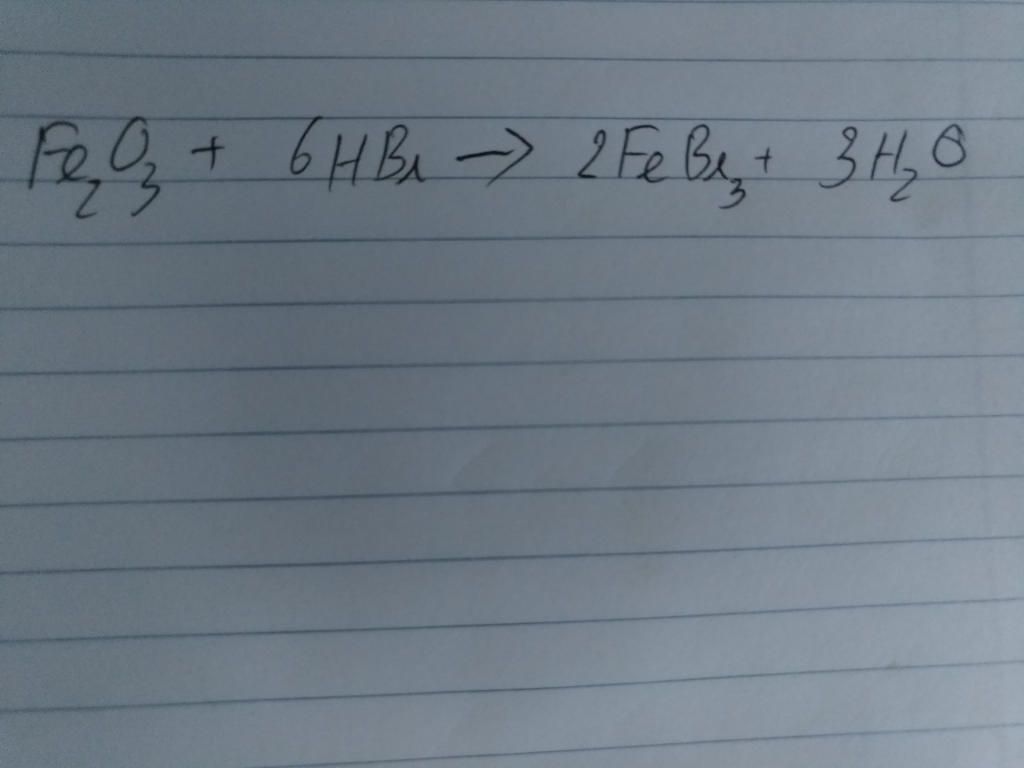 Fe₂O₃ + 6HBr → 2FeBr₃ + 3H₂O